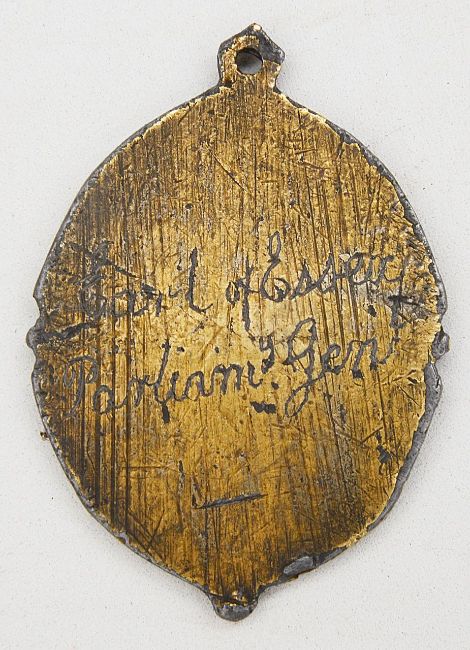 Earl of Essex
Parliamt. Genl